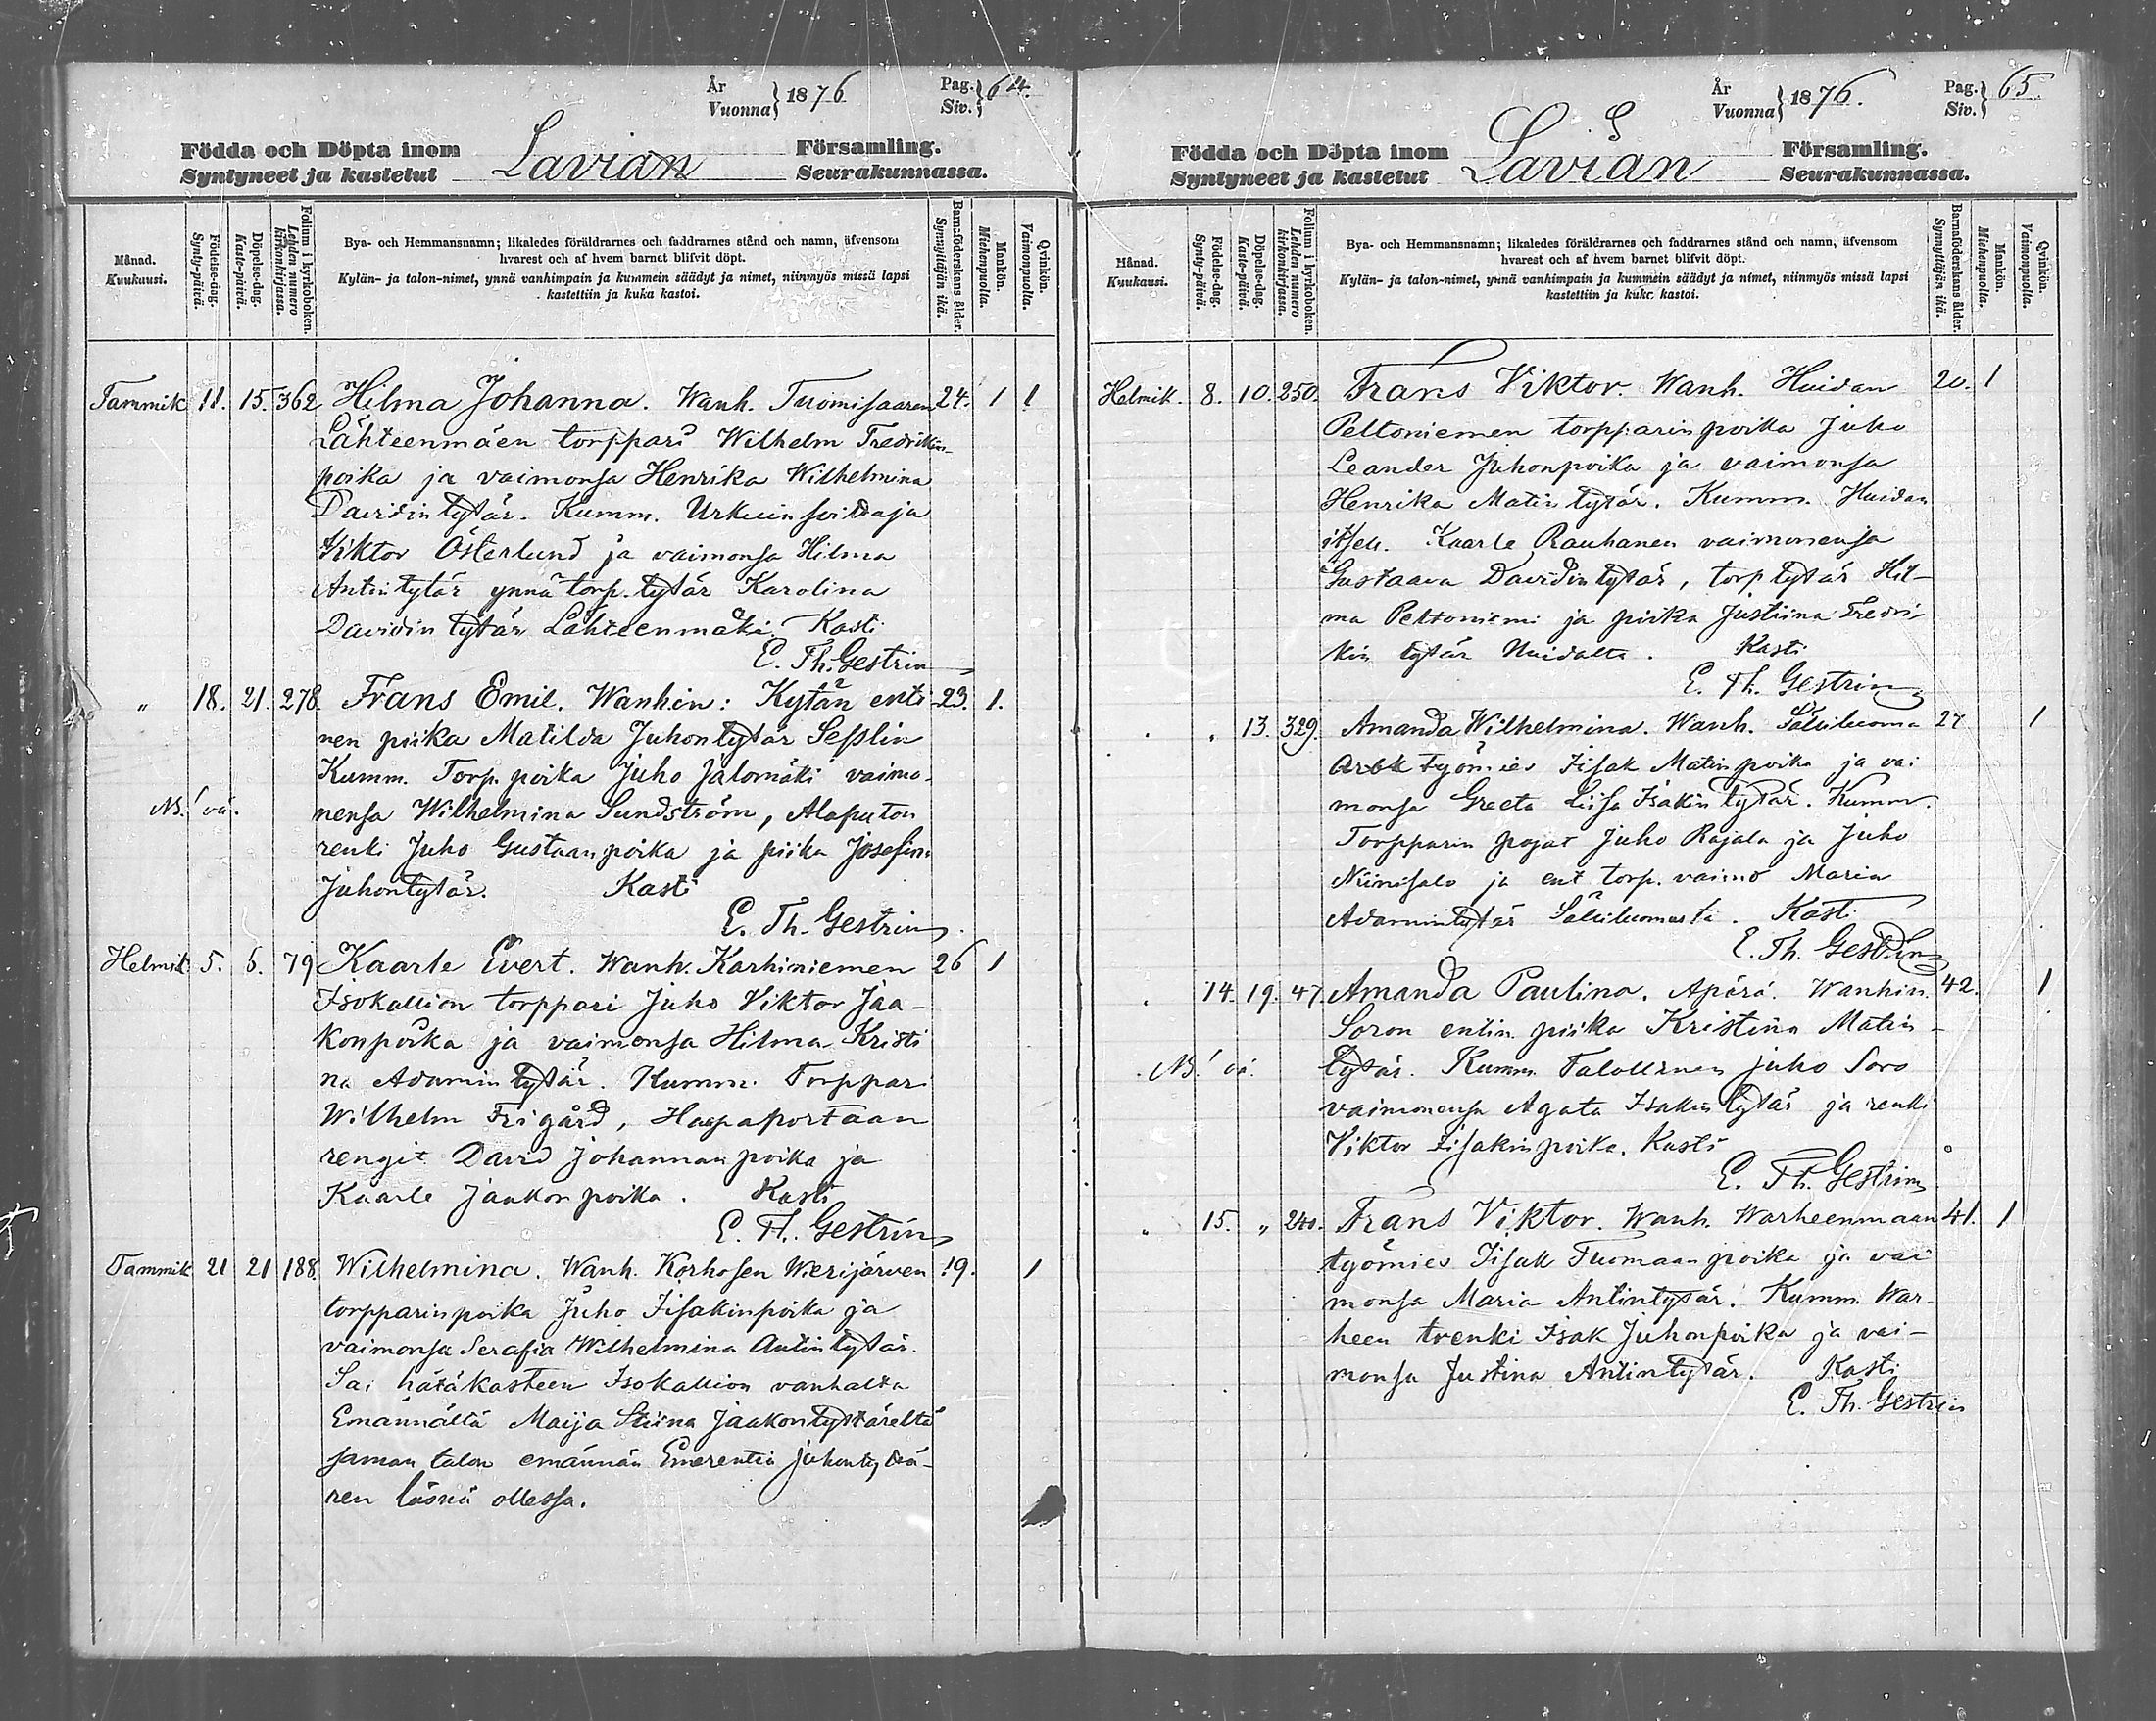 År
Vuonna } 1876
Pag.
Siv. } 64.
Födda och Döpta inom
Syntyneet ja kastetut
Lavian
Församling.
Seurakunnassa.
Månad.
Kuukausi.
Födelse-dag.
Synty-päivä.
Döpelse-dag.
Kaste-päivä.
Folium i kyrkoboken.
Lehden numero kirkonkirjassa.
Bya- och Hemmansnamn; likaledes föräldrarnes och faddrarnes stånd och namn, äfvensom
hvarest och af hvem barnet blifvit döpt.
Kylän- ja talon-nimet, ynnä vanhimpain ja kummein säädyt ja nimet, niinmyös missä lapsi
kastettiin ja kuka kastoi.
Barnaföderskans ålder.
Synnyttäjän ikä.
Mankön.
Miehenpuolta.
Qvinkön.
Vaimonpuolta.
Tammik 11. 15. 362 Hilma Johanna. Wanh. Tuomisaaren 24. 1 1
Lähteenmäen torppari Wilhelm Fredrikin
poika ja vaimonsa Henrika Wilhelmina
Davidintytär. Kumm. Urkuin soittaja
Viktor Österlund ja vaimonsa Hilma
Antintytär ynnä torp. tytär Karolina
Davidin tytär Lähteenmäki. Kasti
E. Th. Gestrin
" 18. 21. 278. Frans Emil. Wanhin: Kytän enti- 23. 1.
nen piika Matilda Juhontytär Seslin
Kumm. Torp. poika Juho Jalomäki vaimo-
NB! vä. nensa Wilhelmina Sundström, Alaputon
renki Juho Gustaanpoika ja piika Josefina
Juhontytär. Kasti
E. Th. Gestrin
Helmik 5. 6. 79 Kaarle Evert. Wanh. Karhiniemen 26 1
Isokallion torppari Juho Viktor Jaa-
konpoika ja vaimonsa Hilma Kristi
na Adamintytär. Kumm. Torppari
Wilhelm Frigård, Haapaportaan
rengit David Johannanpoika ja
Kaarle Jaakonpoika. Kasti
E. Th. Gestrin
Tammik 21 21 188. Wilhelmina. Wanh. Korhosen Werijärven 19. 1
torpparinpoika Juho Iisakinpoika ja
vaimonsa Serafia Wilhelmina Antintytär.
Sai hätäkasteen Isokallion vanhalta
Emännältä Maija Stiina Jaakontyttäreltä
saman talon emännän Emerentia Juhontyttä-
ren läsnä ollessa.
År
Vuonna } 1876.
Pag.
Siv. } 65.
Födda och Döpta inom
Syntyneet ja kastetut
Lavian
Församling.
Seurakunnassa.
Månad.
Kuukausi.
Födelse-dag.
Synty-päivä.
Döpelse-dag.
Kaste-päivä.
Folium i kyrkoboken.
Lehden numero kirkonkirjassa.
Bya- och Hemmansnamn; likaledes föräldrarnes och faddrarnes stånd och namn, äfvensom
hvarest och af hvem barnet blifvit döpt.
Kylän- ja talon-nimet, ynnä vanhimpain ja kummein säädyt ja nimet, niinmyös missä lapsi
kastettiin ja kuka kastoi.
Barnaföderskans ålder.
Synnyttäjän ikä.
Mankön.
Miehenpuolta.
Qvinkön.
Vaimonpuolta.
Helmik. 8. 10. 250. Frans Viktor. Wanh. Huidan 20. 1
Peltoniemen torpparinpoika Juho
Leander Juhonpoika ja vaimonsa
Henrika Matintytär. Kumm. Huidan
itsell. Kaarle Rauhanen vaimonensa
Gustaava Davidintytär, torp tytär Hil-
ma Peltoniemi ja piika Justiina Fredri-
kin tytär Huidalta. Kasti
E. Th. Gestrin
" " 13. 329. Amanda Wilhelmina. Wanh. Sälsiluoma 27 1
Työmies Iisak Matinpoika ja vai
monsa Greeta Liisa Isakintytär. Kumm.
Torpparin pojat Juho Rajala ja Juho
Niinisalo ja ent torp. vaimo Maria
Adamintytär Sälsiluomasta. Kasti
E. Th. Gestrin
" 14. 19. 47. Amanda Paulina. Äpärä. Wanhin. 42. 1
Soron entin. piika Kristina Matin-
NB! vä. tytär. Kumm. Talollinen Juho Soro
vaimonensa Agata Isakintytär ja renki
Viktor Iisakinpoika. Kasti
E. Th. Gestrin
" 15. " 240. Frans Viktor. Wanh. Warheenmaan 41. 1
työmies Iisak Tuomaanpoika ja vai
monsa Maria Antintytär. Kumm. War-
heen trenki Isak Juhonpoika ja vai-
monsa Justina Antintytär. Kasti
E. Th. Gestrin